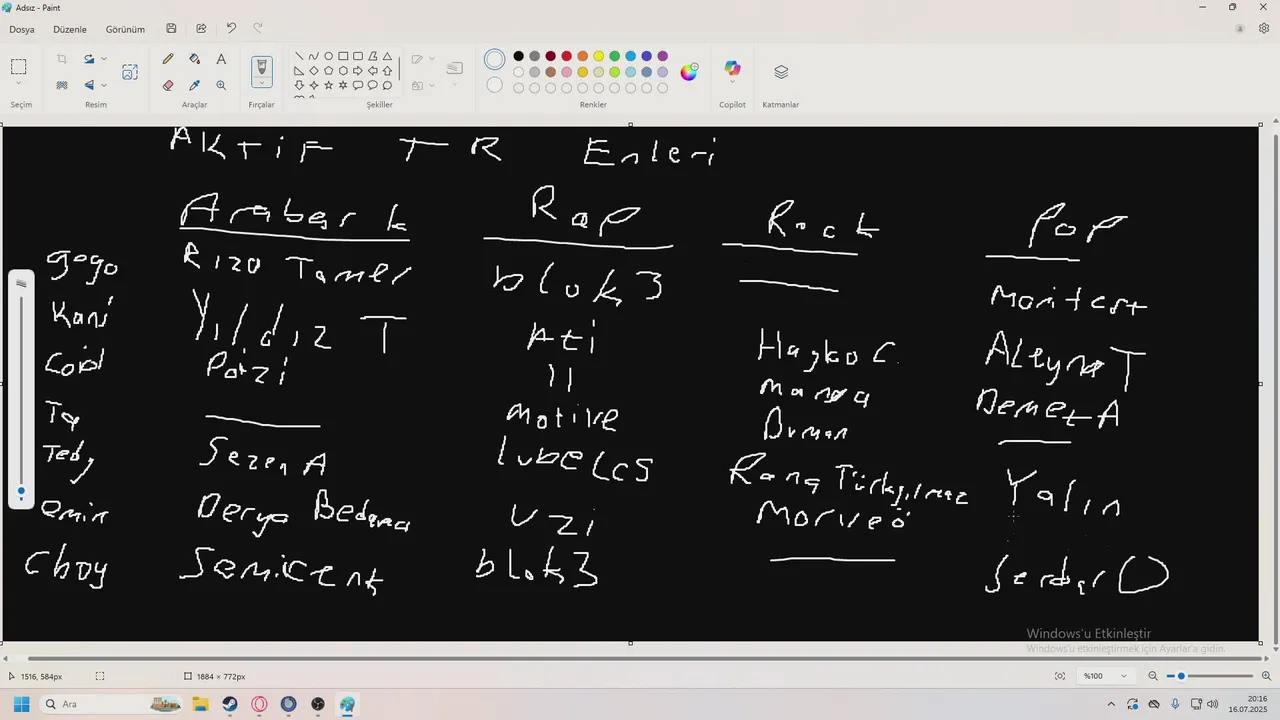 Adsız - Paint
Dosya Düzenle Görünüm
Seçim Resim Araçlar Fırçalar Şekiller Renkler Copilot Katmanlar
AKTiF TR Enleri
Arabesk Rap Rock Pop
gogo Rızo Tamer blok3 ——
Kani Yıldız T Ati Hayko C. Aleyna T
Poizi 11 manga Demet A
Ta —— Motive Duman ——
Tedy Sezen A lvbelc5
emin Derya Bedavacı uzi Moriveö Yalın
Choy Semicenk blok3 —— Serdar O
Windows'u Etkinleştir
Windows'u etkinleştirmek için Ayarlar'a gidin.
1516, 584px 1884 × 772px %100
Ara 20:16
16.07.2025